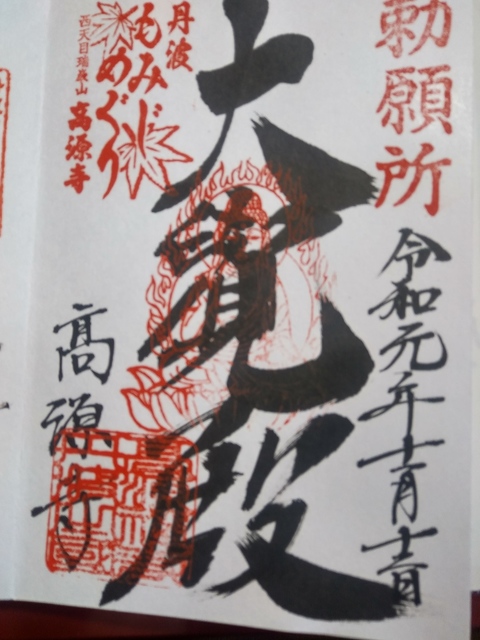 勅願所
令和元年十一月十二日
大覺殿
丹波
もみじ
めぐり
西天目瑞巌山
高源寺
高源寺